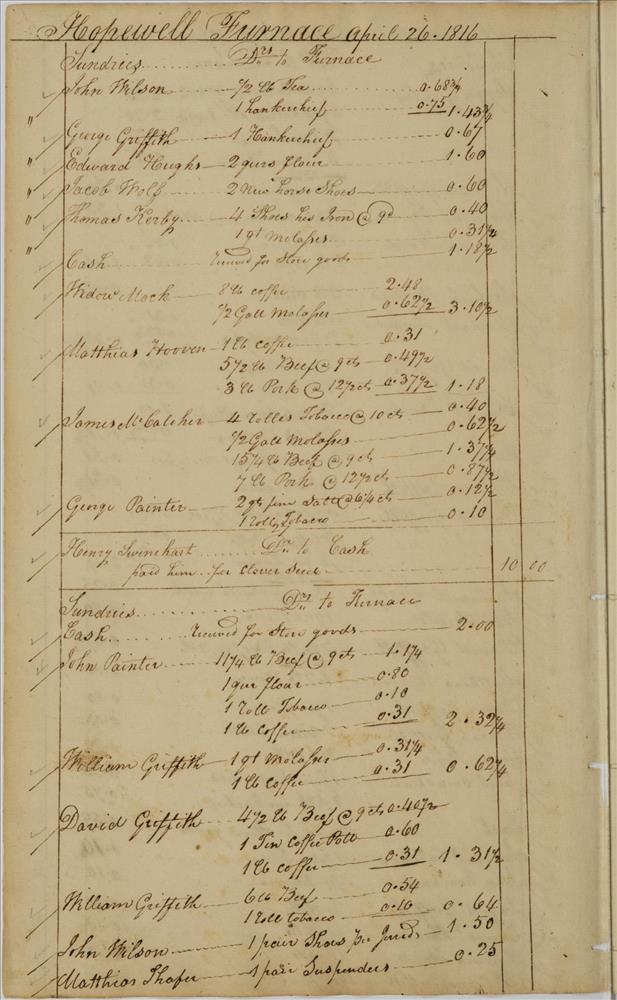 Hopewell Furnace april 26. 1816
Sundries........ Drs to Furnace
John Wilson ..... 1/2 lb Tea 0.68 3/4
1 hankerchief 0.75 1.43 3/4
" George Griffith 1 Hankerchief 0.67
" Edward Hughs 2 qurs flour 1.60
" Jacob Wolf 2 New horse Shoes 0.60
" Thomas Kerby 4 Shoes his Iron @ 9d 0.40
1 qt Molasses 0.31 1/2
" Cash received for Store goods 1.18 1/2
Widow Mock 8 lb coffee 2.48
1/2 Gall Molasses 0.62 1/2 3.10 1/2
Matthias Hooven 1 lb Coffee 0.31
5 1/2 lb Beef @ 9 cts 0.49 1/2
3 lb Pork @ 12 1/2 cts 0.37 1/2 1.18
James McCalcher 4 rolles Tobacco @ 10 cts 0.40
1/2 Gall Molasses 0.62 1/2
15 1/4 lb Beef @ 9 cts 1.37 1/4
7 lb Pork @ 12 1/2 cts 0.87 1/2
George Painter 2 qts fine Salt @ 6 1/4 cts 0.12 1/2
1 Roll Tobacco 0.10
Henry Swinehart ....... Dr. to Cash
paid him.. for Clover Seed 10 00
Sundries........... Drs to Furnace
Cash..... received for Store goods 2.00
John Painter 11 1/4 lb Beef @ 9 cts 1.1 1/4
1 qur flour 0.80
1 roll Tobacco 0.10
1 lb Coffee 0.31 2.32 1/4
William Griffith 1 qt Molasses 0.31 1/4
1 lb Coffee 0.31 0.62 1/4
David Griffith 4 1/2 lb Beef @ 9 cts 0.40 1/2
1 Tin Coffee Pott 0.60
1 lb coffee 0.31 1.31 1/2
William Griffith 6 lb Beef 0.54
1 roll tobacco 0.10 0.64
John Wilson 1 pair Shoes 1.50
Matthias Shafer 1 pair Suspenders 0.25